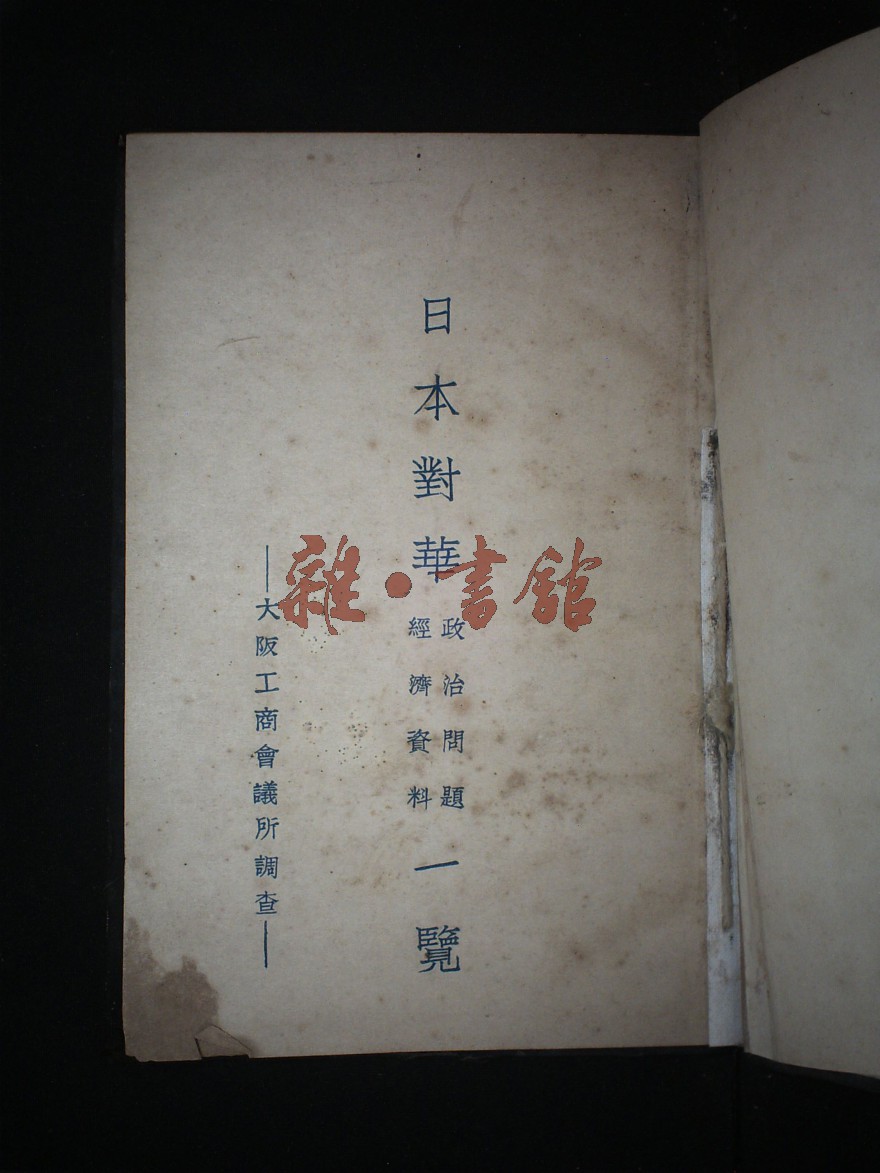 日本對華
政治問題
經濟資料
一覽
—大阪工商會議所調查—
雜·書館